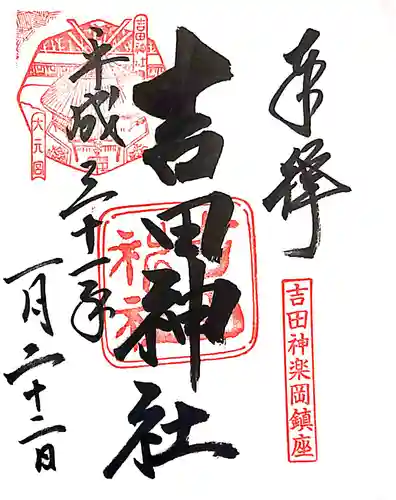 奉拝
吉田神楽岡鎮座
吉田神社
吉田神社
平成三十一年
一月二十二日
吉田神社
大元宮